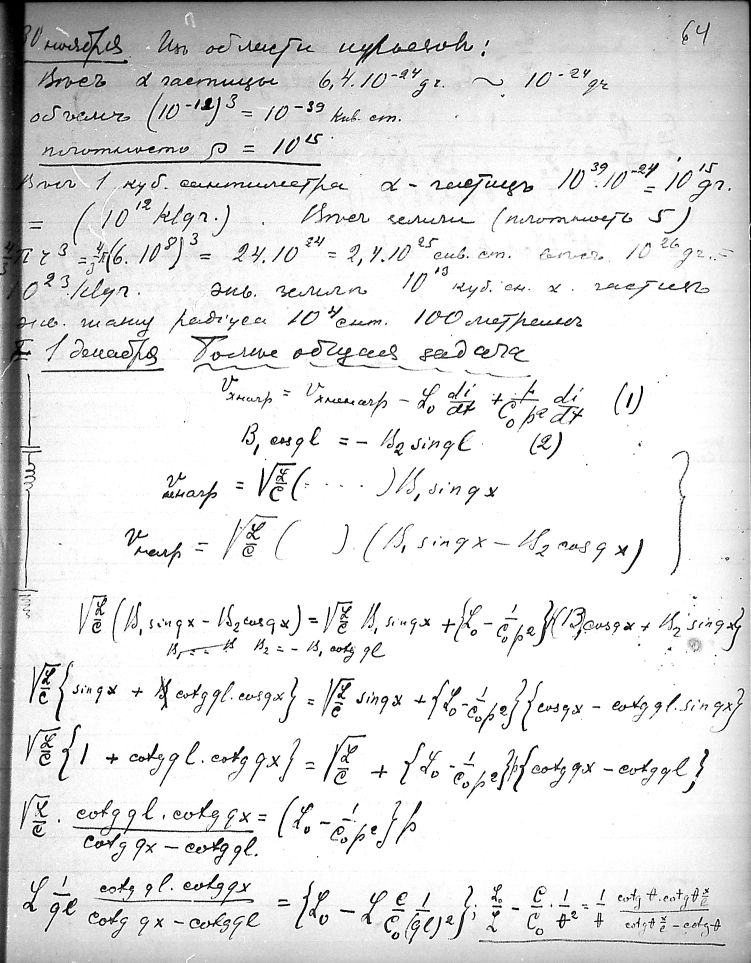 64
30 ноября Из области курьезов:
Вес α частицы 6,4.10⁻²⁴ gr. ~ 10⁻²⁴ gr
объем (10⁻¹²)³ = 10⁻³⁹ куб. cm.
плотность ρ = 10¹⁵
Вес 1 куб. сантиметра α-частиц 10³⁹.10⁻²⁴ = 10¹⁵ gr.
= (10¹² klgr.). Вес земли (плотность 5)
4/3 π r³ = 4/3 π (6.10⁸)³ = 24.10²⁴ = 2,4.10²⁵ cm. вес 10²⁶ gr. =
10²³ klgr. экв. земля 10¹³ куб. см. α. частиц
экв. шару радіуса 10⁴ cent. 100 метров
1 декабря Более общая задача
V х напр = V х ненапр − L₀ di/dt + 1/(C₀p²) di/dt (1)
B₁ cos ql = − B₂ sin ql (2)
V ненапр = √(L/C) (· · · ·) B₁ sin qx
V напр = √(L/C) ( ) . (B₁ sin qx − B₂ cos qx)
√(L/C) (B₁ sin qx − B₂ cos qx) = √(L/C) B₁ sin qx + {L₀ − 1/(C₀p²)} (B₁ cos qx + B₂ sin qx)
B₂ = − B₁ cotg ql
√(L/C) {sin qx + cotg ql . cos qx} = √(L/C) sin qx + {L₀ − 1/(C₀p²)} {cos qx − cotg ql . sin qx}
√(L/C) {1 + cotg ql . cotg qx} = √(L/C) + {L₀ − 1/(C₀p²)} p {cotg qx − cotg ql}
√(L/C) . (cotg ql . cotg qx)/(cotg qx − cotg ql.) = (L₀ − 1/(C₀p²)} p
L 1/(ql) (cotg ql . cotg qx)/(cotg qx − cotg ql) = {L₀ − L C/C₀ 1/(ql)²} ; L₀/L − C/C₀ . 1/θ² = 1/θ (cotg θ . cotg θ x/l)/(cotg θ x/l − cotg θ)